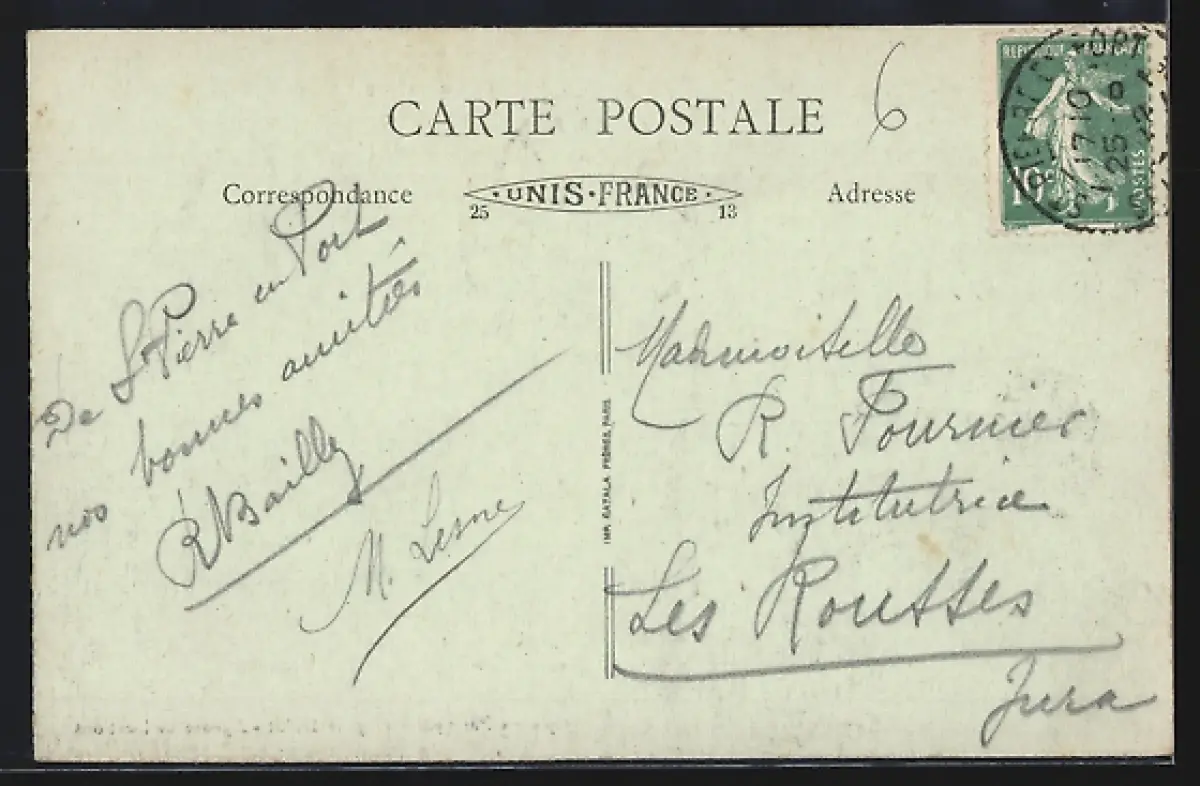 CARTE POSTALE
6
Correspondance
UNIS-FRANCE
25 13
Adresse
REPUBLIQUE FRANÇAISE
POSTES
17 10
25
De St Pierre en Port
nos bonnes amitiés
R Bailly
M. Lesne
IMP. CATALA FRÈRES, PARIS
Mademoiselle
R. Fournier
Institutrice
Les Rousses
Jura